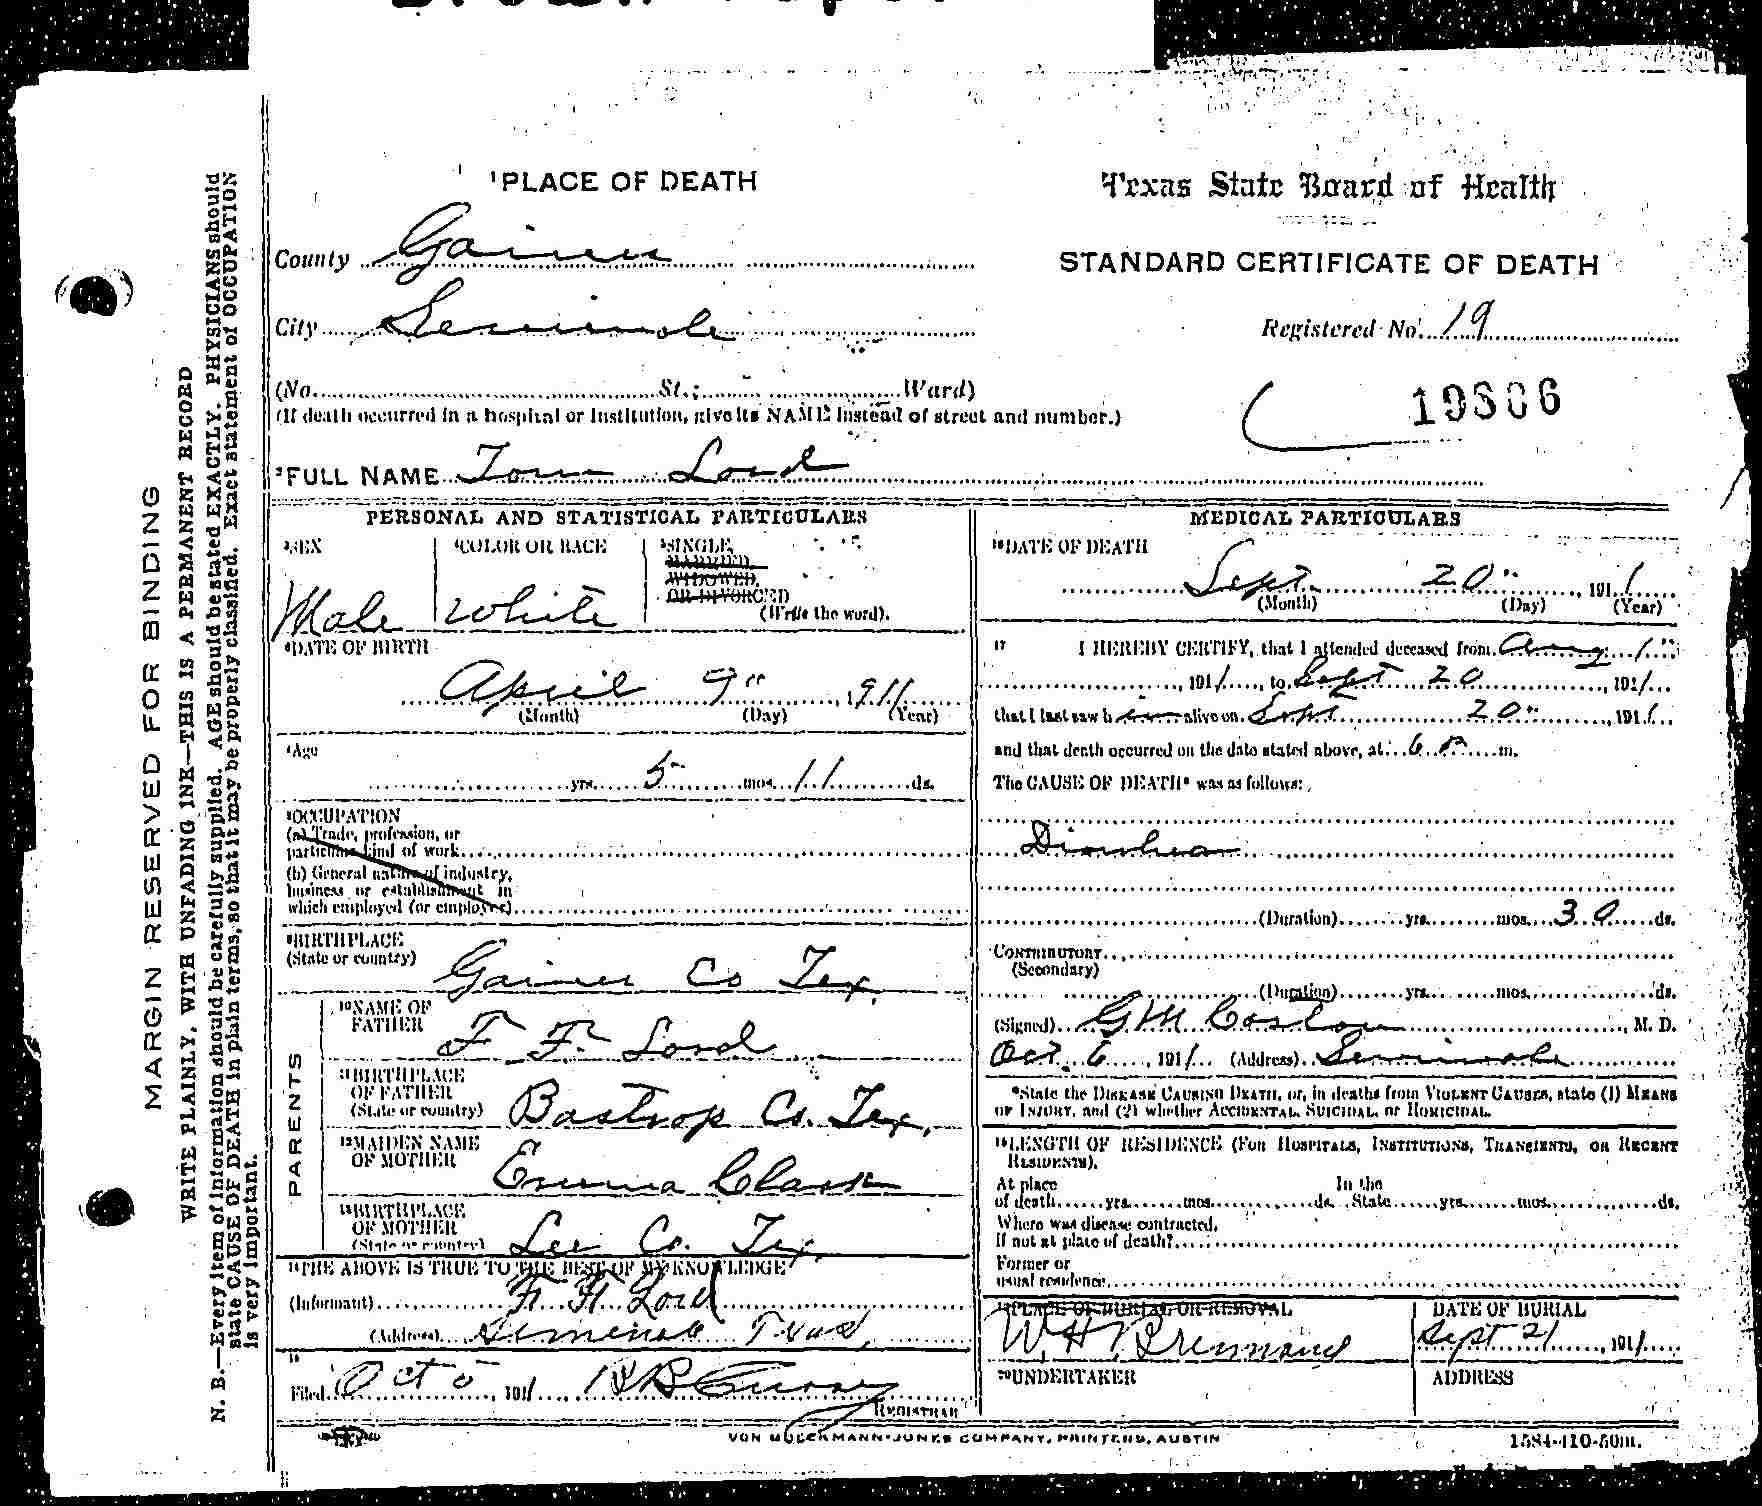 ¹PLACE OF DEATH
Texas State Board of Health
County Gaines
STANDARD CERTIFICATE OF DEATH
City Seminole
Registered No. 19
(No. St.; Ward)
(If death occurred in a hospital or institution, give its NAME instead of street and number.)
²FULL NAME Tom Lord
PERSONAL AND STATISTICAL PARTICULARS
³SEX
Male
⁴COLOR OR RACE
White
⁵SINGLE,
MARRIED,
WIDOWED,
OR DIVORCED
(Write the word).
⁶DATE OF BIRTH
April 9" , 1911
(Month) (Day) (Year)
⁷Age
yrs. 5 mos. 11 ds.
⁸OCCUPATION
(a) Trade, profession, or
particular kind of work
(b) General nature of industry,
business or establishment in
which employed (or employer)
⁹BIRTHPLACE
(State or country)
Gaines Co Tex.
PARENTS
¹⁰NAME OF
FATHER
F. F. Lord
¹¹BIRTHPLACE
OF FATHER
(State or country)
Bastrop Co. Tex,
¹²MAIDEN NAME
OF MOTHER
Emma Clark
¹³BIRTHPLACE
OF MOTHER
(State or country)
Lee Co. Tex,
¹⁴THE ABOVE IS TRUE TO THE BEST OF MY KNOWLEDGE
(Informant) F. F. Lord
(Address) Texas,
¹⁵
Filed Oct 5, 1911
REGISTRAR
MEDICAL PARTICULARS
¹⁶DATE OF DEATH
Sept. 20" , 1911
(Month) (Day) (Year)
¹⁷ I HEREBY CERTIFY, that I attended deceased from Aug 1"
, 1911, to Sept 20, 1911
that I last saw him alive on Sept 20", 1911
and that death occurred on the date stated above, at 6 P. m.
The CAUSE OF DEATH* was as follows:
(Duration) yrs. mos. 30 ds.
CONTRIBUTORY
(Secondary)
(Duration) yrs. mos. ds.
(Signed) G M , M. D.
Oct. 6, 1911 (Address) Seminole
*State the DISEASE CAUSING DEATH, or, in deaths from VIOLENT CAUSES, state (1) MEANS
OF INJURY, and (2) whether ACCIDENTAL, SUICIDAL, or HOMICIDAL.
¹⁸LENGTH OF RESIDENCE (FOR HOSPITALS, INSTITUTIONS, TRANSIENTS, OR RECENT
RESIDENTS).
At place In the
of death yrs. mos. ds. State yrs. mos. ds.
Where was disease contracted,
If not at place of death?
Former or
usual residence
¹⁹PLACE OF BURIAL OR REMOVAL
W. H.
DATE OF BURIAL
Sept 21, 1911
²⁰UNDERTAKER
ADDRESS
VON BOECKMANN-JONES COMPANY, PRINTERS, AUSTIN
1584-410-50m.
MARGIN RESERVED FOR BINDING
WRITE PLAINLY, WITH UNFADING INK—THIS IS A PERMANENT RECORD
N. B.—Every item of information should be carefully supplied. AGE should be stated EXACTLY. PHYSICIANS should
state CAUSE OF DEATH in plain terms, so that it may be properly classified. Exact statement of OCCUPATION
is very important.